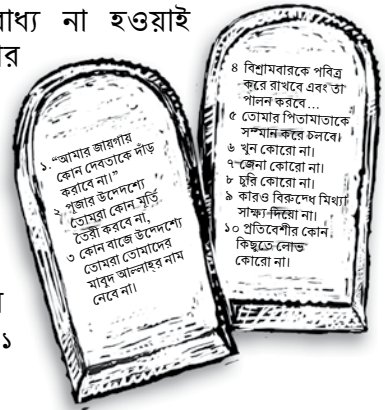 বাধ্য না হওয়াই
র
১. “আমার জায়গায়
কোন দেবতাকে দাঁড়
করাবে না।”
২ পূজার উদ্দেশ্যে
তোমরা কোন মূর্তি
তৈরী করবে না,
৩ কোন বাজে উদ্দেশ্যে
তোমরা তোমাদের
মাবুদ আল্লাহর নাম
নেবে না।
৪ বিশ্রামবারকে পবিত্র
করে রাখবে এবং তা
পালন করবে...
৫ তোমার পিতামাতাকে
সম্মান করে চলবে।
৬ খুন কোরো না।
৭ জেনা কোরো না।
৮ চুরি কোরো না।
৯ কারও বিরুদ্ধে মিথ্যা
সাক্ষ্য দিয়ো না।
১০ প্রতিবেশীর কোন
কিছুতে লোভ
কোরো না।
১